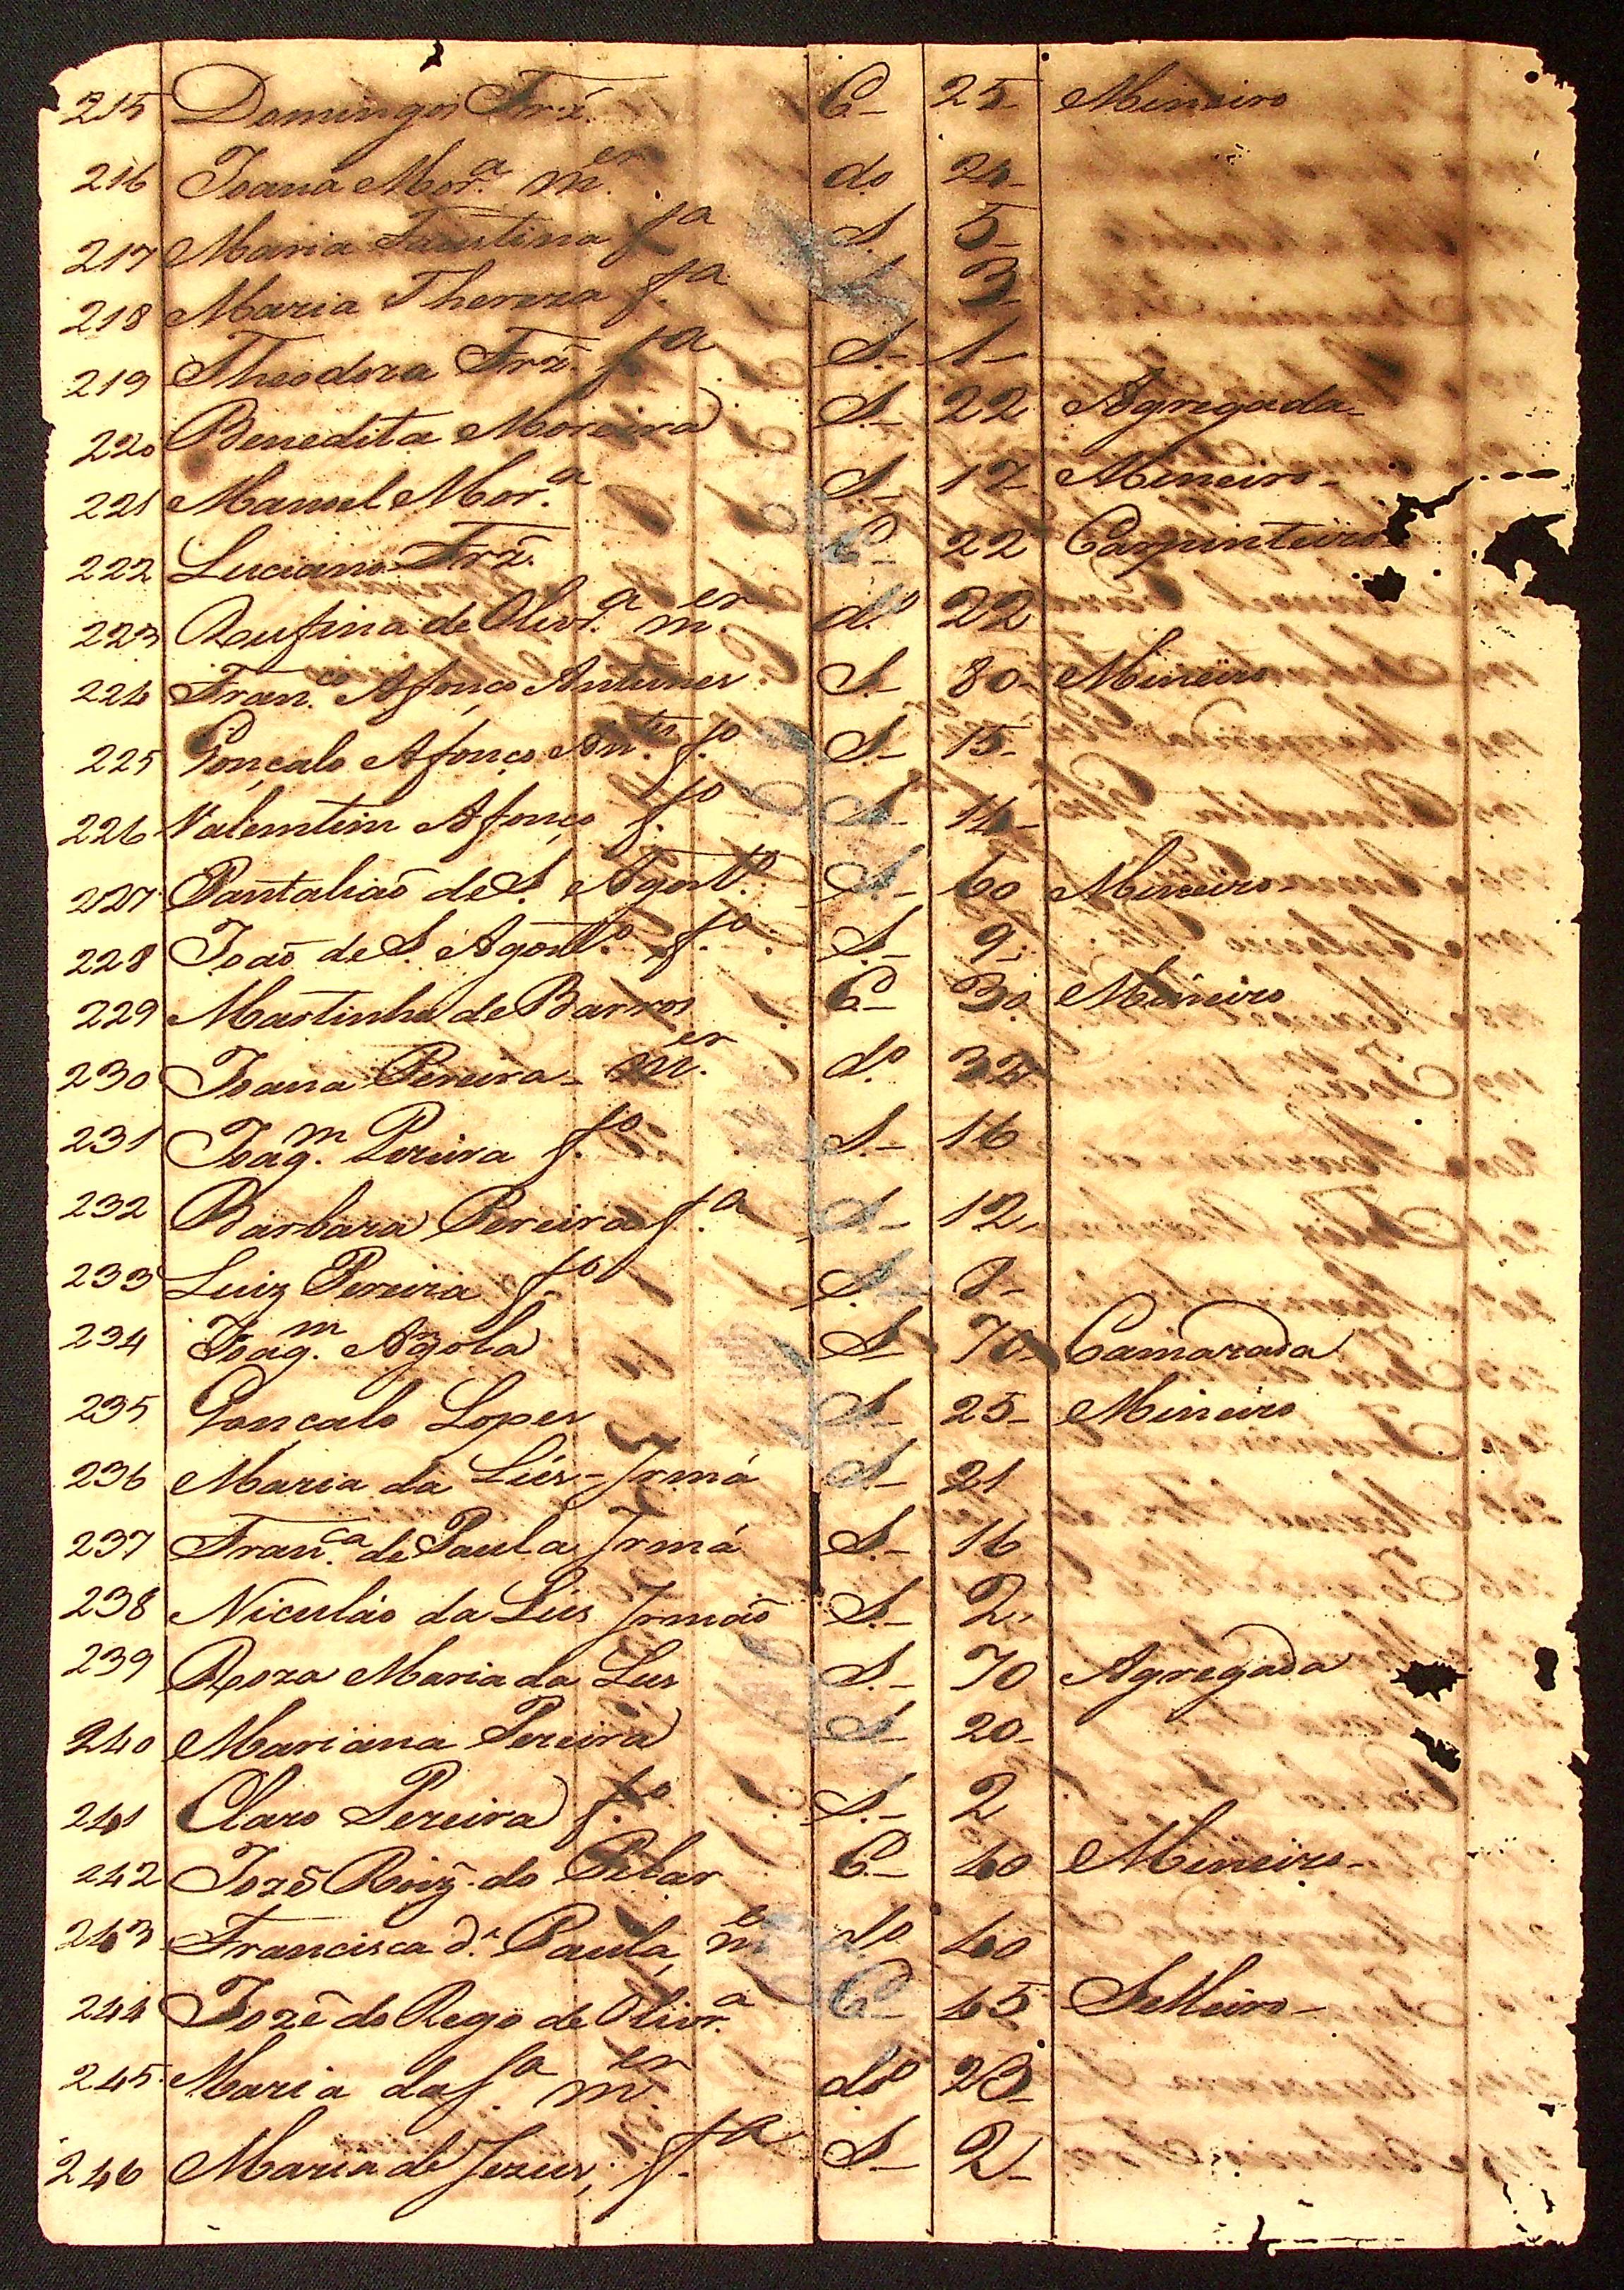 215 Domingos Frz̃. C– 25 Mineiro
216 Joana Mor.ª m.er do 24–
217 Maria Faustina f.ª S. 5–
218 Maria Thereza f.ª 3–
219 Theodora Frz̃. f.ª S.– 1–
220 Benedita Moreira S.– 22 Agregada–
221 Manoel Mor.ª S.– 17– Mineiro–
222 Luciano Frz̃. C– 22 Carpinteiro–
223 Rufina de Olivr.ª m.er d.º 22
224 Fran.co Afonço Antunes S.– 80– Mineiro
225 Gonçalo Afonço An.tes f.º S.– 15–
226 Valemtim Afonço f.º S.– 14–
227 Pantalião de S. Agost.º S.– 60 Mineiro–
228 João de S. Agost.º f.º S.– 9–
229 Martinho de Barros C– 30 Mineiro
230 Joana Pereira– m.er d.º 32
231 Joaq.m Pereira f.º S.– 16
232 Barbara Pereira f.ª S– 12
233 Luiz Pereira f.º S. 8–
234 Joaq.m Azola S– 70– Camarada
235 Gonçalo Lopes S– 25– Mineiro
236 Maria da Lús– Irmá S– 21
237 Fran.ca de Paula Irmá S.– 16
238 Niculáo da Lús Irmaõ S.– 2
239 Roza Maria da Lus S.– 70 Agregada
240 Mariana Pereira S– 20–
241 Claro Pereira f.º S.– 2
242 Jozé Roiz̃. do Pilar C.– 40 Mineiro–
243 Francisca d.e Paula, m.er do 40
244 Jozé do Rego de Olivr.ª C– 45 Selleiro–
245 Maria da f.ª m.er d.º 23–
246 Maria de Jezus, f.ª S– 2–